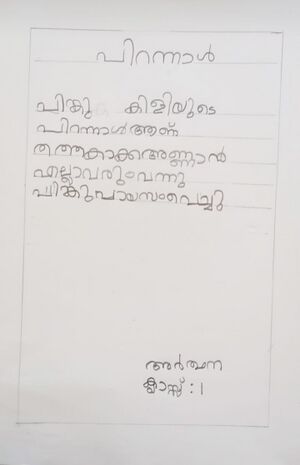 പിറന്നാൾ
ചിങ്കു കിളിയുടെ
പിറന്നാൾആണ്
തത്തകാക്കഅണ്ണാൻ
എല്ലാവരുംവന്നു
ചിങ്കുപായസംവെച്ചു
അർത്ഥന
ക്ലാസ്സ് : 1